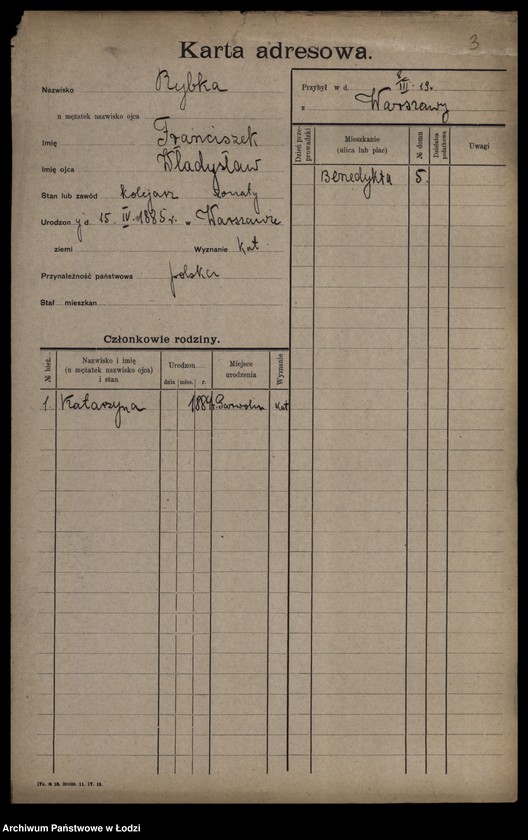 3
Karta adresowa.
Nazwisko Rybka
u mężatek nazwisko ojca
Imię Franciszek
Imię ojca Władysław
Stan lub zawód kolejarz żonaty
Urodzon y d. 15 IV. 1885 r. w Warszawie
ziemi Wyznanie kat
Przynależność państwowa polska
Stał mieszkan
Przybył w d. III 19 r.
z Warszawy
Dzień przeprowadzki
Mieszkanie
(ulica lub plac)
№ domu
Dzielnica
podatkowa
Uwagi
Benedykta 5.
Członkowie rodziny.
№ bież.
Nazwisko i imię
(u mężatek nazwisko ojca)
i stan
Urodzon
dnia mies. r.
Miejsce
urodzenia
Wyznanie
1. Katarzyna 1884 r. Garwolin kat
Archiwum Państwowe w Łodzi